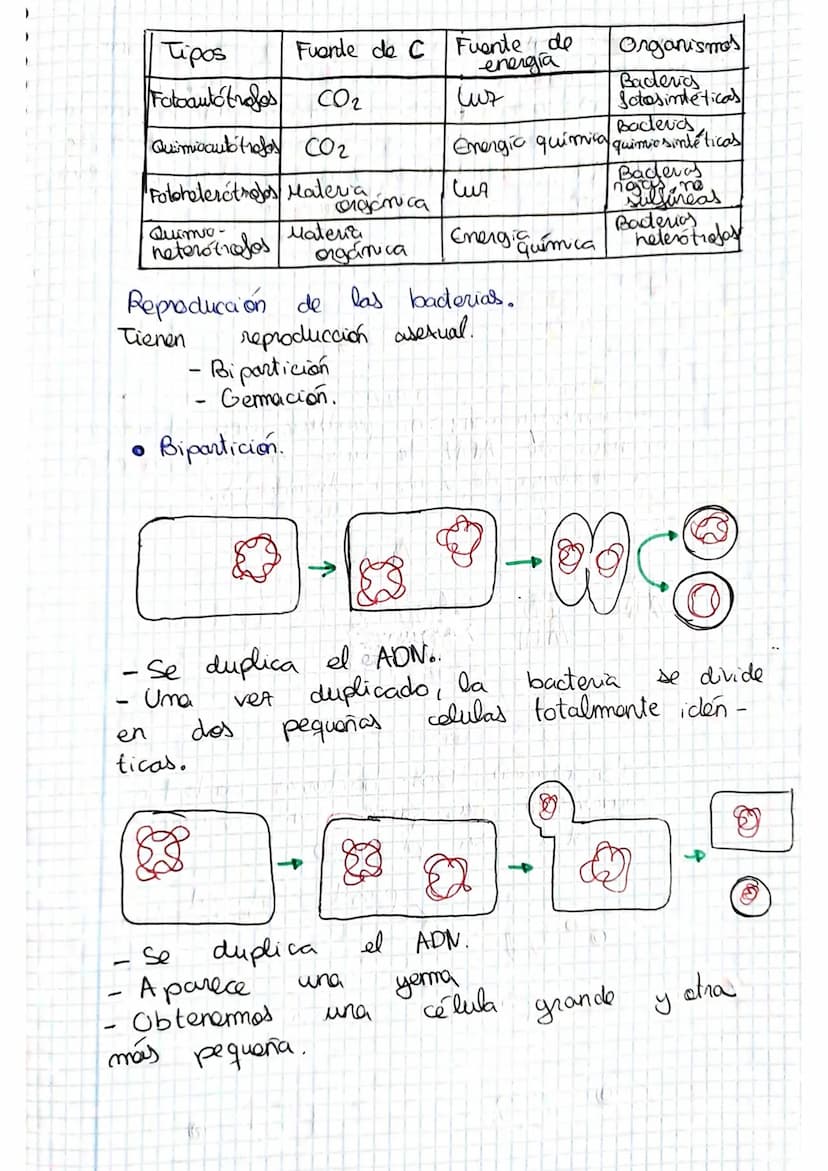 Tipos Fuente de C Fuente de energía Organismos
Fotoautótrofos CO2 Luz Bacterias fotosintéticas
Quimioautótrofos CO2 Energía química Bacterias quimiosintéticas
Fotoheterótrofos Materia orgánica Luz Bacterias rojas no sulfúreas
Quimio-heterótrofos Materia orgánica Energía química Bacterias heterótrofas
Reproducción de las bacterias.
Tienen reproducción asexual.
- Bipartición
- Gemación.
• Bipartición.
- Se duplica el ADN.
- Una vez duplicado, la bacteria se divide
en dos pequeñas celulas totalmente idén-
ticas.
- Se duplica el ADN.
- Aparece una yema
- Obtenermos una célula grande y otra
más pequeña.